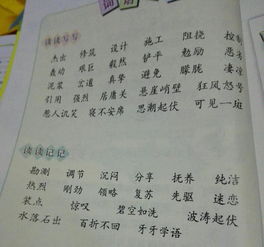 词语
读读写写
杰出 修筑 设计 施工 阻挠 控制
轰动 艰巨 毅然 铲平 勉励 恶劣
泥浆 岔道 真挚 避免 朦胧 凄凉
引用 强烈 居庸关 悬崖峭壁 狂风怒号
惹人讥笑 寝不安席 思潮起伏 可见一斑
读读记记
勘测 调节 沉闷 分享 抚养 纯洁
热烈 刚劲 领略 复苏 先驱 迷恋
装点 惊叹 碧空如洗 波涛起伏
水落石出 百折不回 牙牙学语